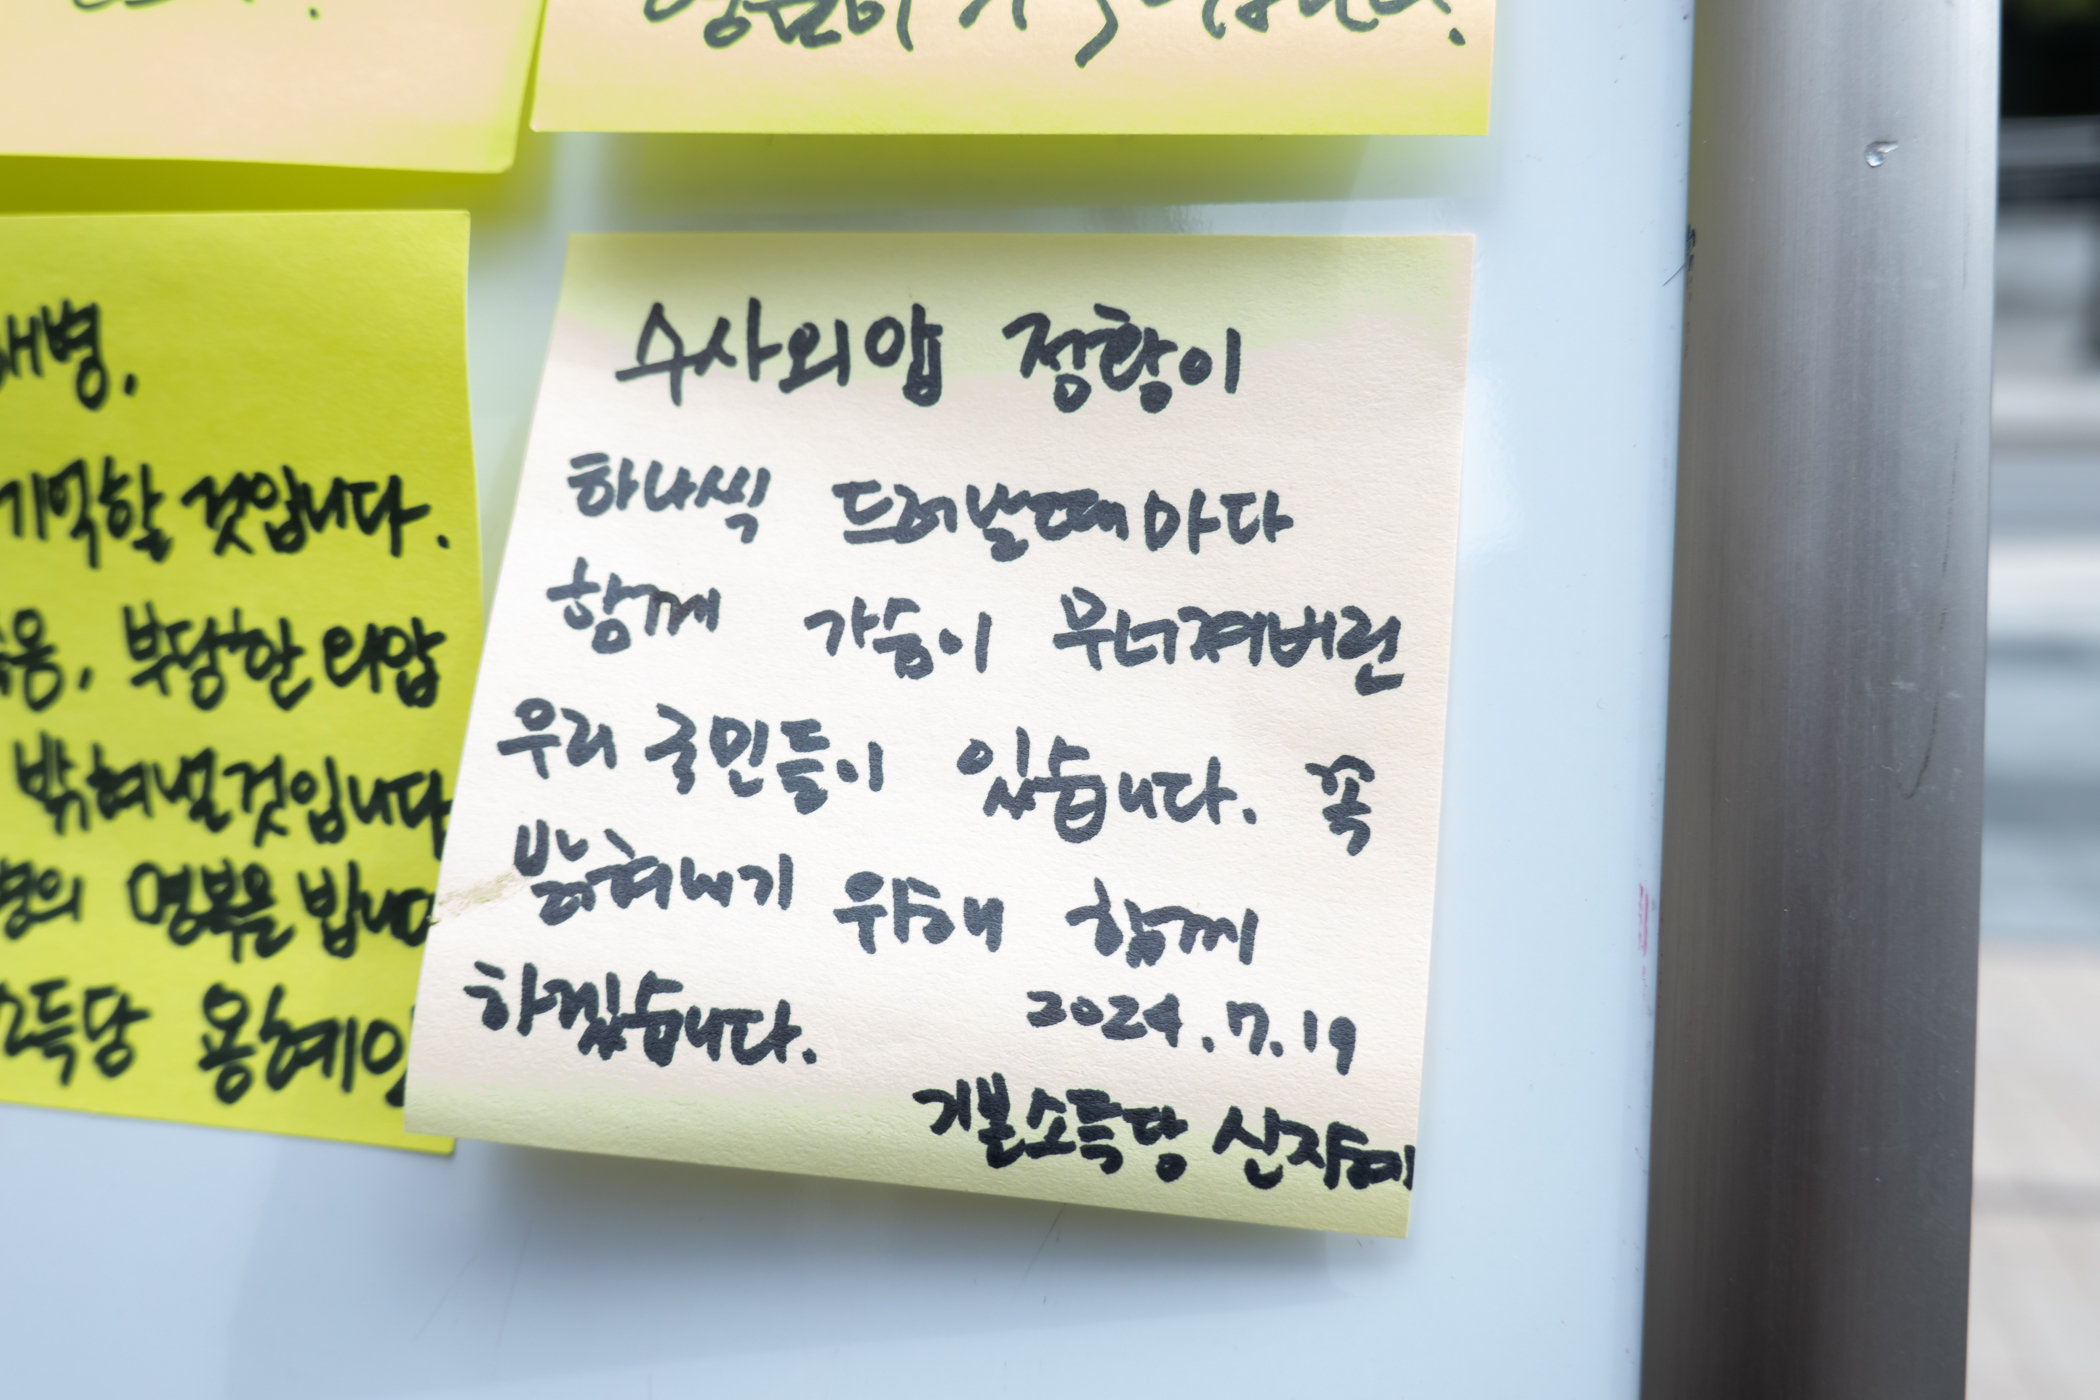 영원히 기억합니다.
해병.
기억할 것입니다.
죽음, 부당한 외압
밝혀낼것입니다
병의 명복을 빕니다
소득당 용혜인
수사외압 정황이
하나씩 드러날때마다
함께 가슴이 무너져버린
우리 국민들이 있습니다. 꼭
밝혀내기 위해 함께
하겠습니다. 2024.7.19
기본소득당 신지혜